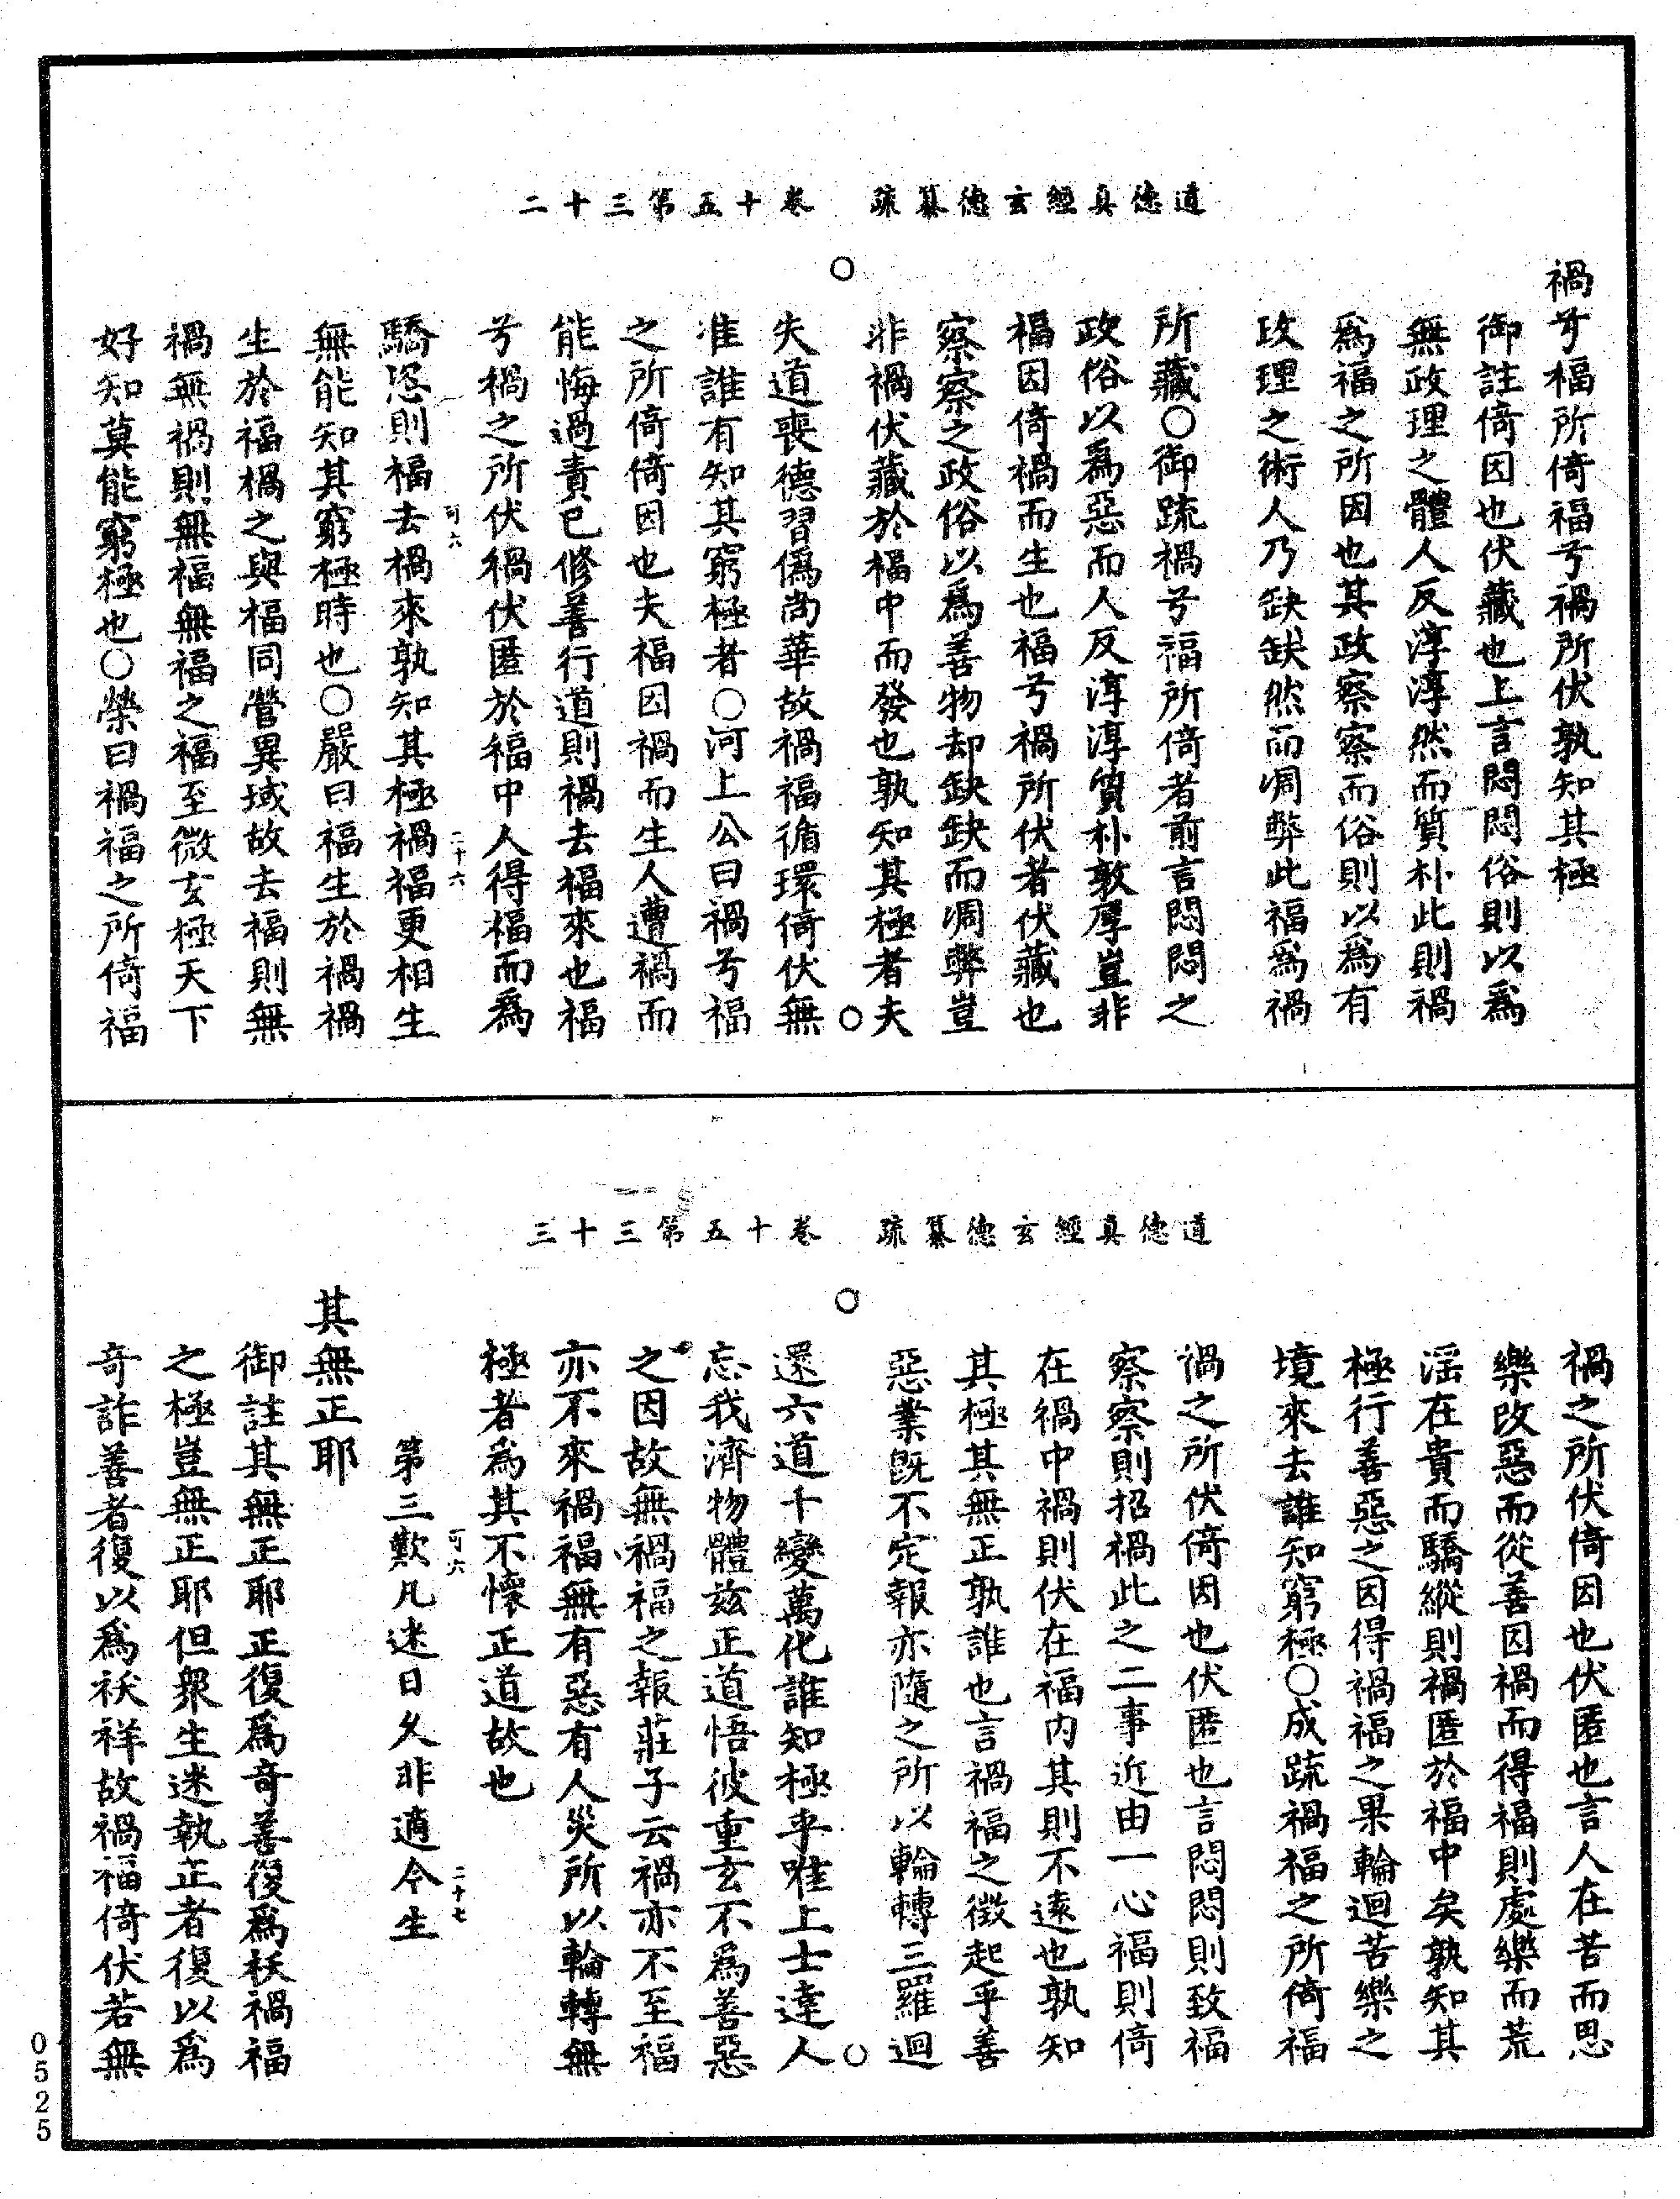 道德真經玄德纂疏　卷十五第三十二
禍兮福所倚福兮禍所伏孰知其極
御註倚因也伏藏也上言悶悶俗則以爲
無政理之體人反淳淳然而質朴此則禍
爲福之所因也其政察察而俗則以爲有
政理之術人乃缺缺然而凋弊此福爲禍
所藏○御疏禍兮福所倚者前言悶悶之
政俗以爲惡而人反淳淳質朴敦厚豈非
福因倚禍而生也福兮禍所伏者伏藏也
察察之政俗以爲善物却缺缺而凋弊豈
非禍伏藏於福中而發也孰知其極者夫
失道喪德習僞尚華故禍福循環倚伏無
准誰有知其窮極者○河上公曰禍兮福
之所倚倚因也夫福因禍而生人遭禍而
能悔過責己修善行道則禍去福來也福
兮禍之所伏禍伏匿於福中人得福而爲
可六　二十六
驕恣則福去禍來孰知其極禍福更相生
無能知其窮極時也○嚴曰福生於禍禍
生於福禍之與福同營異域故去福則無
禍無禍則無福無福之福至微玄極天下
好知莫能窮極也○榮曰禍福之所倚福
道德真經玄德纂疏　卷十五第三十三
禍之所伏倚因也伏匿也言人在苦而思
樂改惡而從善因禍而得福則處樂而荒
淫在貴而驕縱則禍匿於福中矣孰知其
極行善惡之因得禍福之果輪迴苦樂之
境來去誰知窮極○成疏禍福之所倚福
禍之所伏倚因也伏匿也言悶悶則致福
察察則招禍此之二事近由一心福則倚
在禍中禍則伏在福內其則不遠也孰知
其極其無正孰誰也言禍福之徵起乎善
惡業既不定報亦隨之所以輪轉三羅迴
還六道千變萬化誰知極乎唯上士達人
忘我濟物體茲正道悟彼重玄不爲善惡
之因故無禍福之報莊子云禍亦不至福
亦不來禍福無有惡有人災所以輪轉無
極者爲其不懷正道故也
可六　二十七
第三歎凡迷日久非適今生
其無正耶
御註其無正耶正復爲奇善復爲袄禍福
之極豈無正耶但衆生迷執正者復以爲
奇詐善者復以爲袄祥故禍福倚伏若無
0525